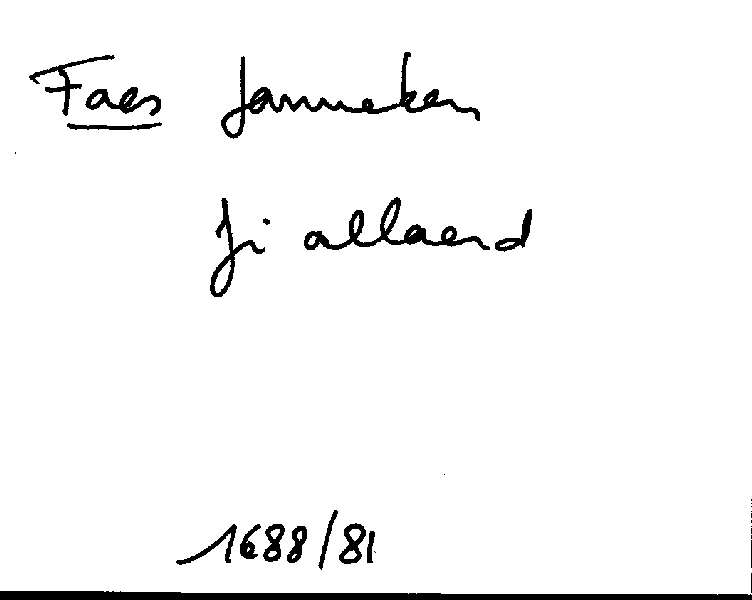 Faes Janneken
fi allaerd
1688/81